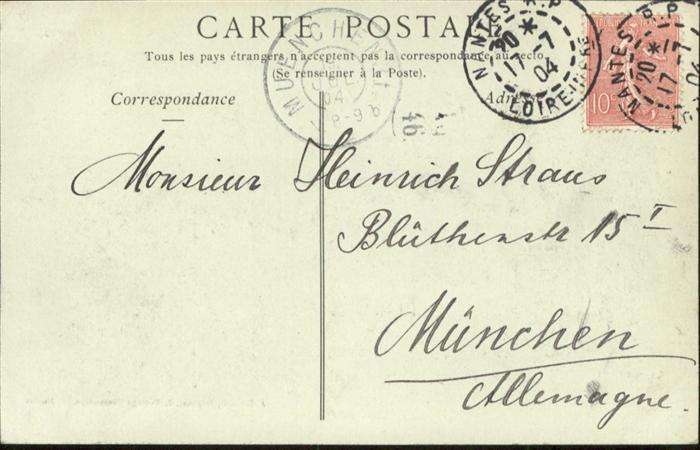 CARTE POSTALE
Tous les pays étrangers n'acceptent pas la correspondance au recto.
(Se renseigner à la Poste).
Correspondance
Adresse
NANTES R.P
20 *
17-7
04
LOIRE-INFRE
NANTES R.P
20 *
17-7
04
10
MUENCHEN
JUL
04
8-9
16
Monsieur Heinrich Straus
Blüthenstr 15 I
München
Allemagne.